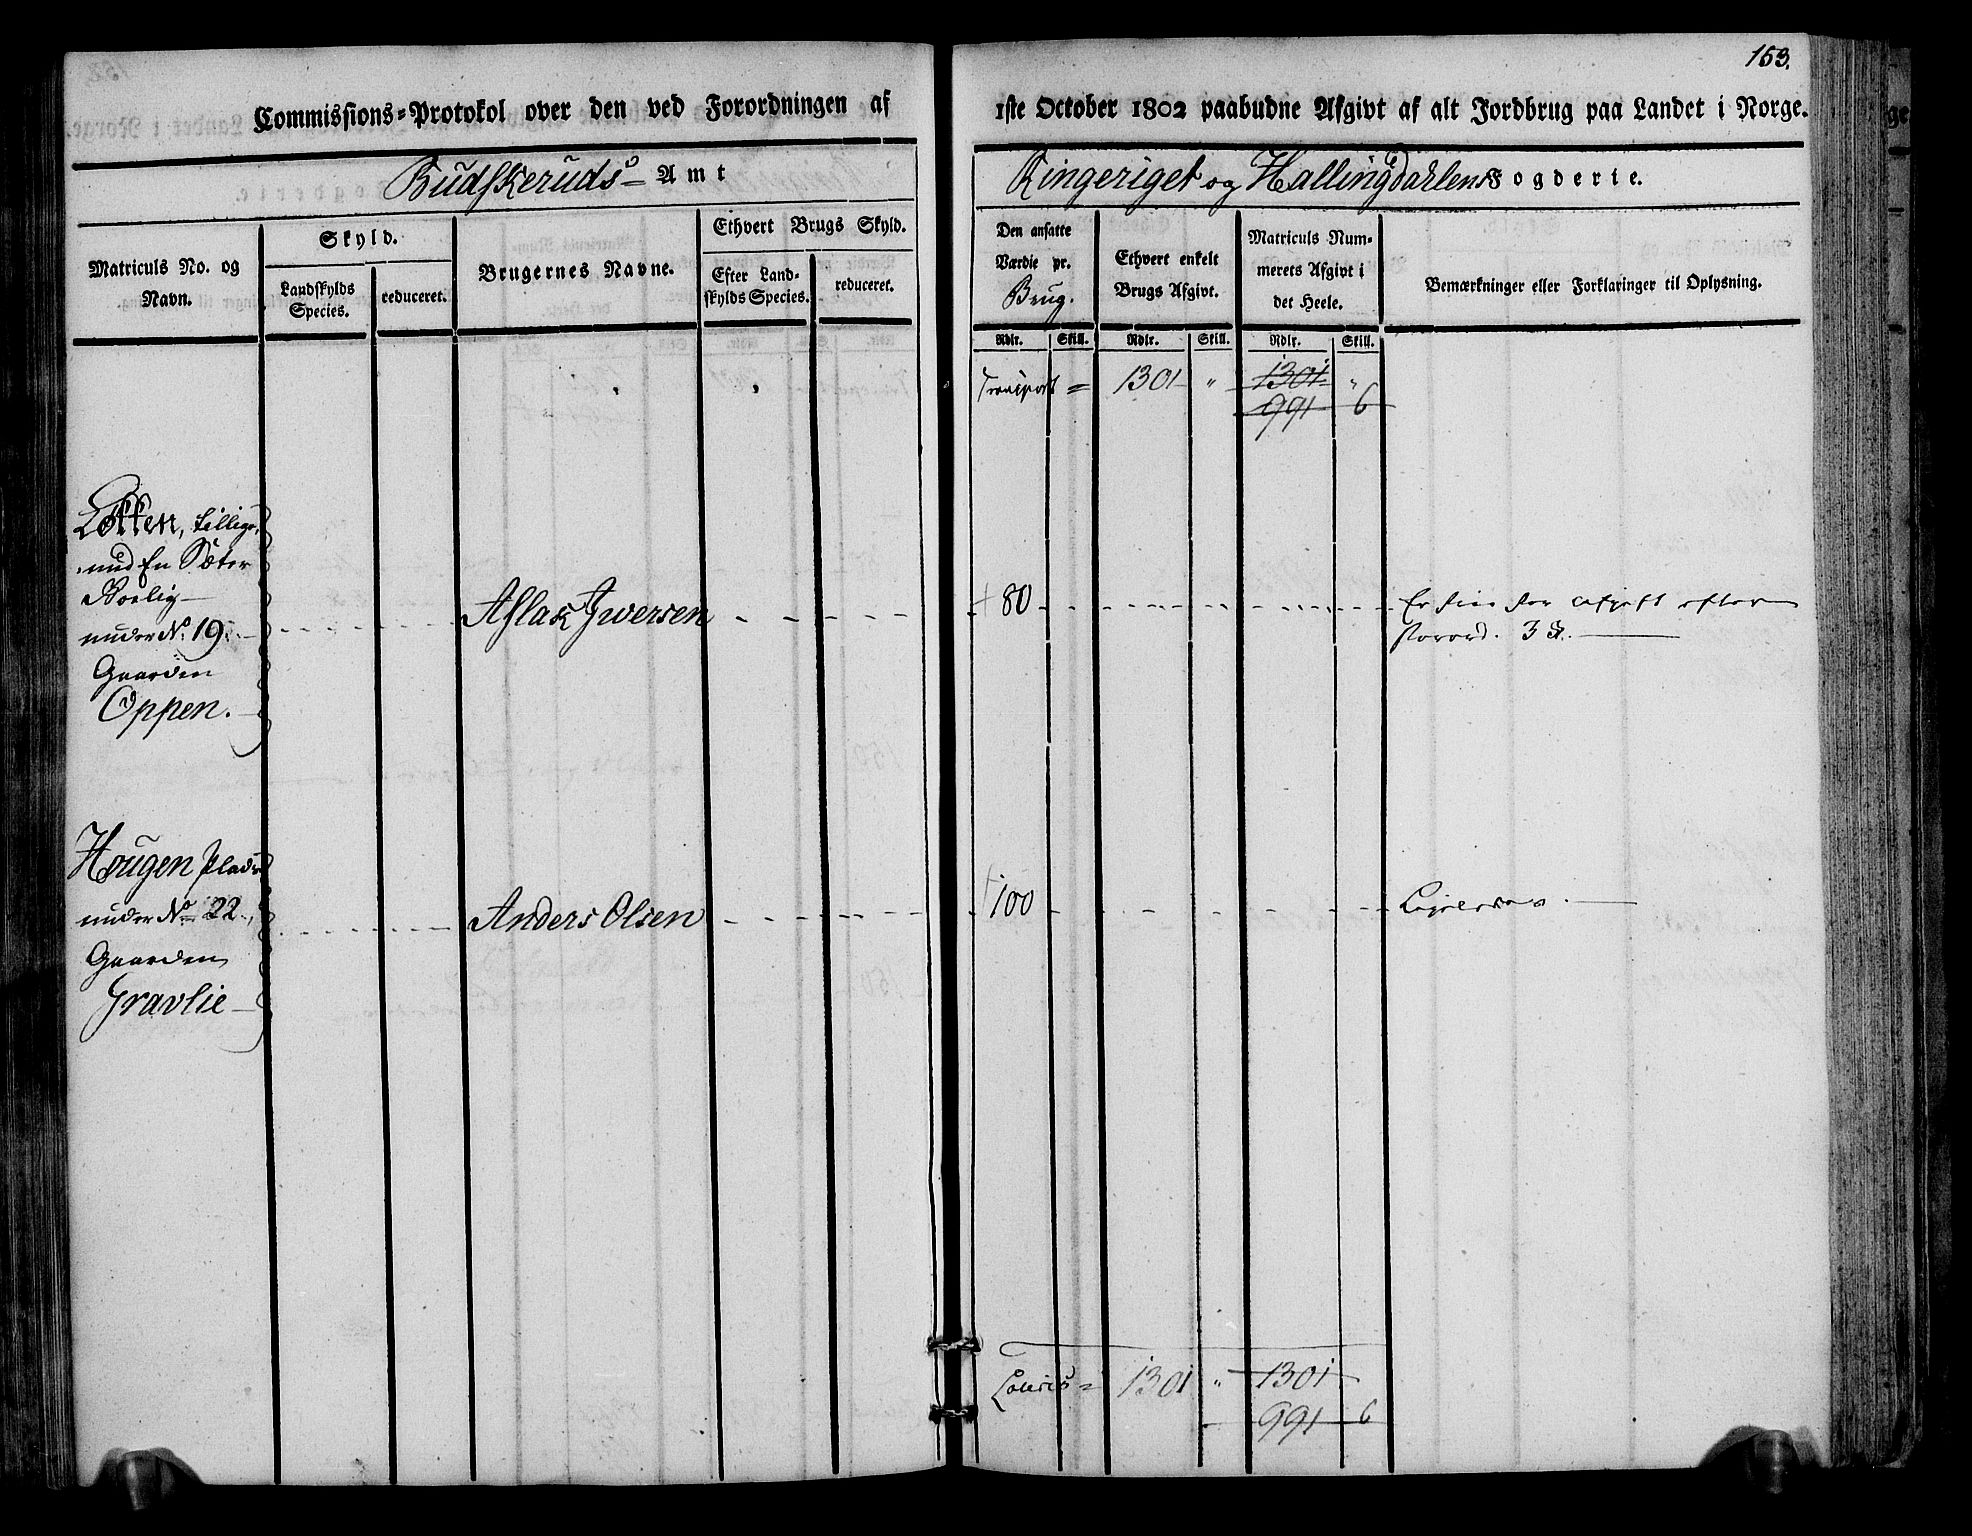 153.
Commissions-Protokol over den ved Forordningen af 1ste October 1802 paabudne Afgivt af alt Jordbrug paa Landet i Norge.
Budskeruds Amt
Ringeriget og Hallingdahlens Fogderie.
Matriculs No. og Navn.
Skyld.
Landskylds Species.
reduceret.
Brugernes Navne.
Ethvert Brugs Skyld.
Efter Landskylds Species.
reduceret.
Den ansatte Værdie pr. Brug.
Ethvert enkelt Brugs Afgivt.
Matriculs Nummerets Afgivt i det Heele.
Bemærkninger eller Forklaringer til Oplysning.
Rdlr. Skill. Rdlr. Skill. Rdlr. Skill.
Transport = 1301 " 1301 "
991 6
Løkken, tillige
med En Sæter
under No. 19
Gaarden
Oppen.
Aslak Iwersen
80
Er frie for Afgift efter
Forord. 3 §.
Hougen Plads
under No. 22
Gaarden
Gravlie
Anders Olsen
100
Ligeledes.
Lateris = 1301 " 1301
991 6